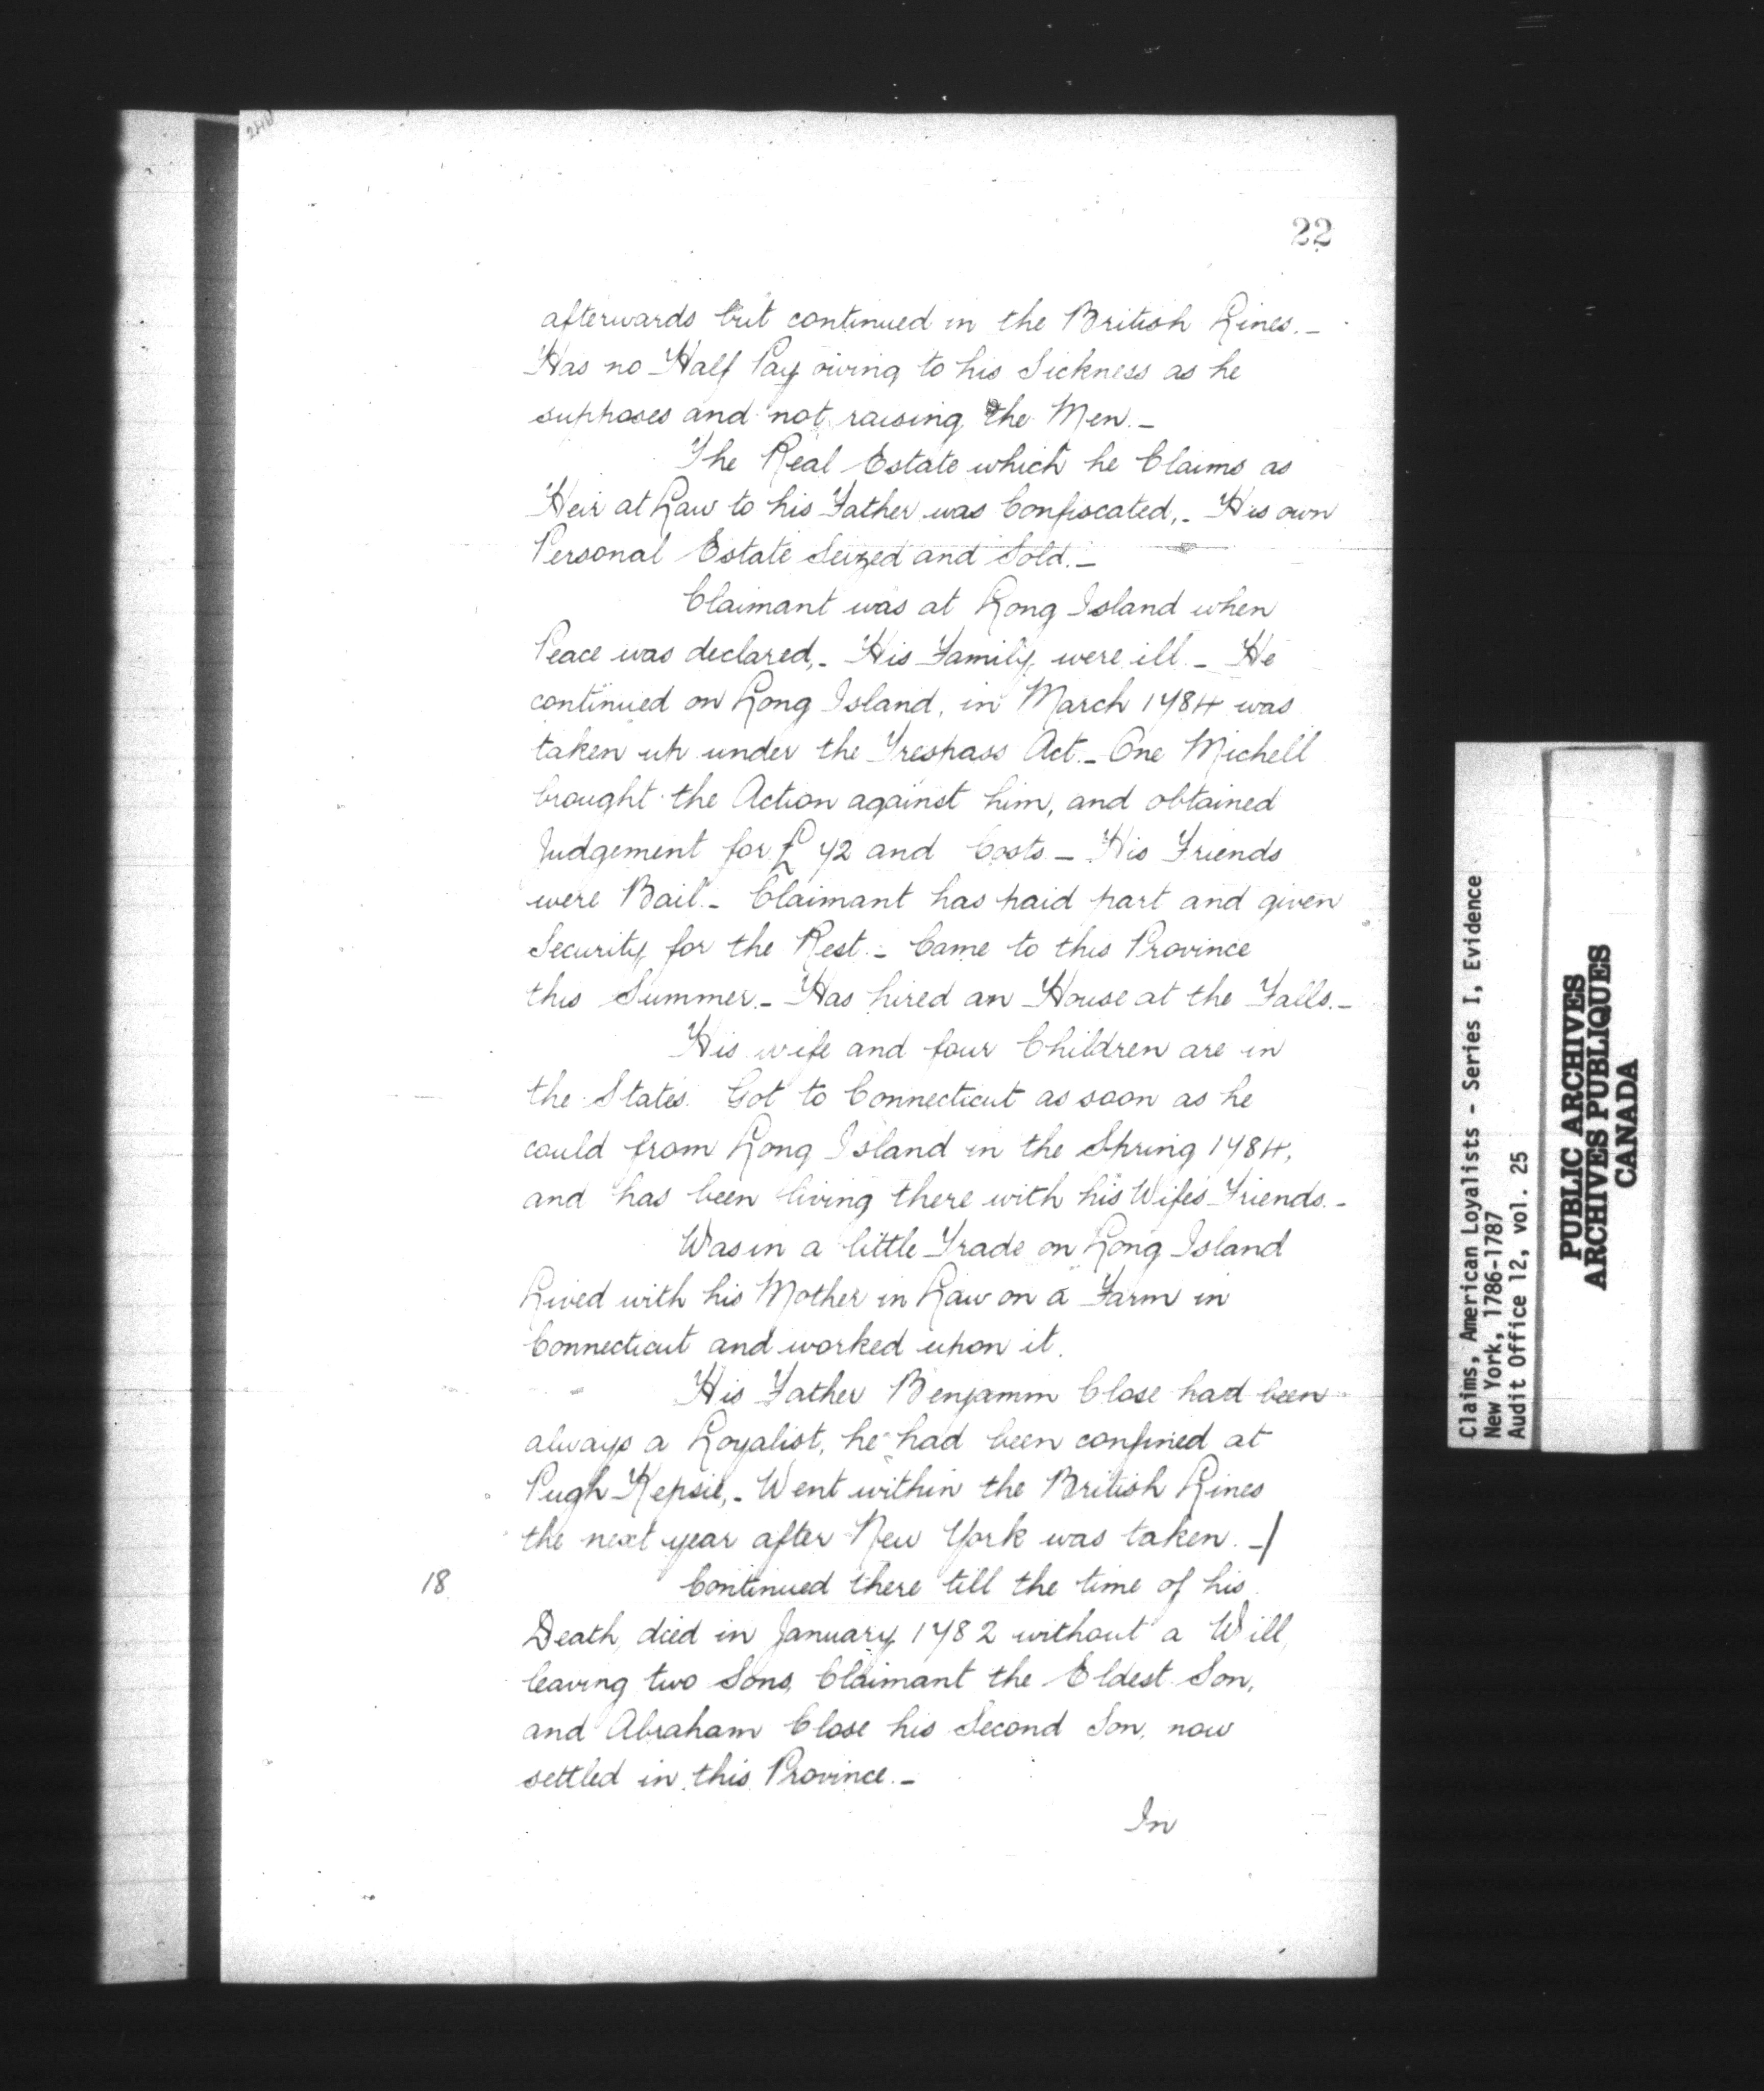 22
afterwards but continued in the British Lines._
Has no Half Pay owing to his Sickness as he
supposes and not raising the Men._
The Real Estate which he Claims as
Heir at Law to his Father was Confiscated,_ His own
Personal Estate Seized and Sold._
Claimant was at Long Island when
Peace was declared,_ His Family were ill_ He
continued on Long Island, in March 1784 was
taken up under the Trespass Act._ One Michell
brought the Action against him, and obtained
Judgement for £72 and Costs_ His Friends
were Bail._ Claimant has paid part and given
Security for the Rest._ Came to this Province
this Summer._ Has hired an House at the Falls._
His wife and four Children are in
the States. Got to Connecticut as soon as he
could from Long Island in the Spring 1784,
and has been living there with his Wifes Friends._
Was in a little Trade on Long Island
Lived with his Mother in Law on a Farm in
Connecticut and worked upon it.
His Father Benjamin Close had been
always a Loyalist, he had been confined at
Pugh Kepsie,_ Went within the British Lines
the next year after New York was taken._/
18. Continued there till the time of his
Death, died in January 1782 without a Will,
leaving two Sons, Claimant the Eldest Son,
and Abraham Close his Second Son, now
settled in this Province._
In
Claims, American Loyalists - Series I, Evidence
New York, 1786-1787
Audit Office 12, vol. 25
PUBLIC ARCHIVES
ARCHIVES PUBLIQUES
CANADA